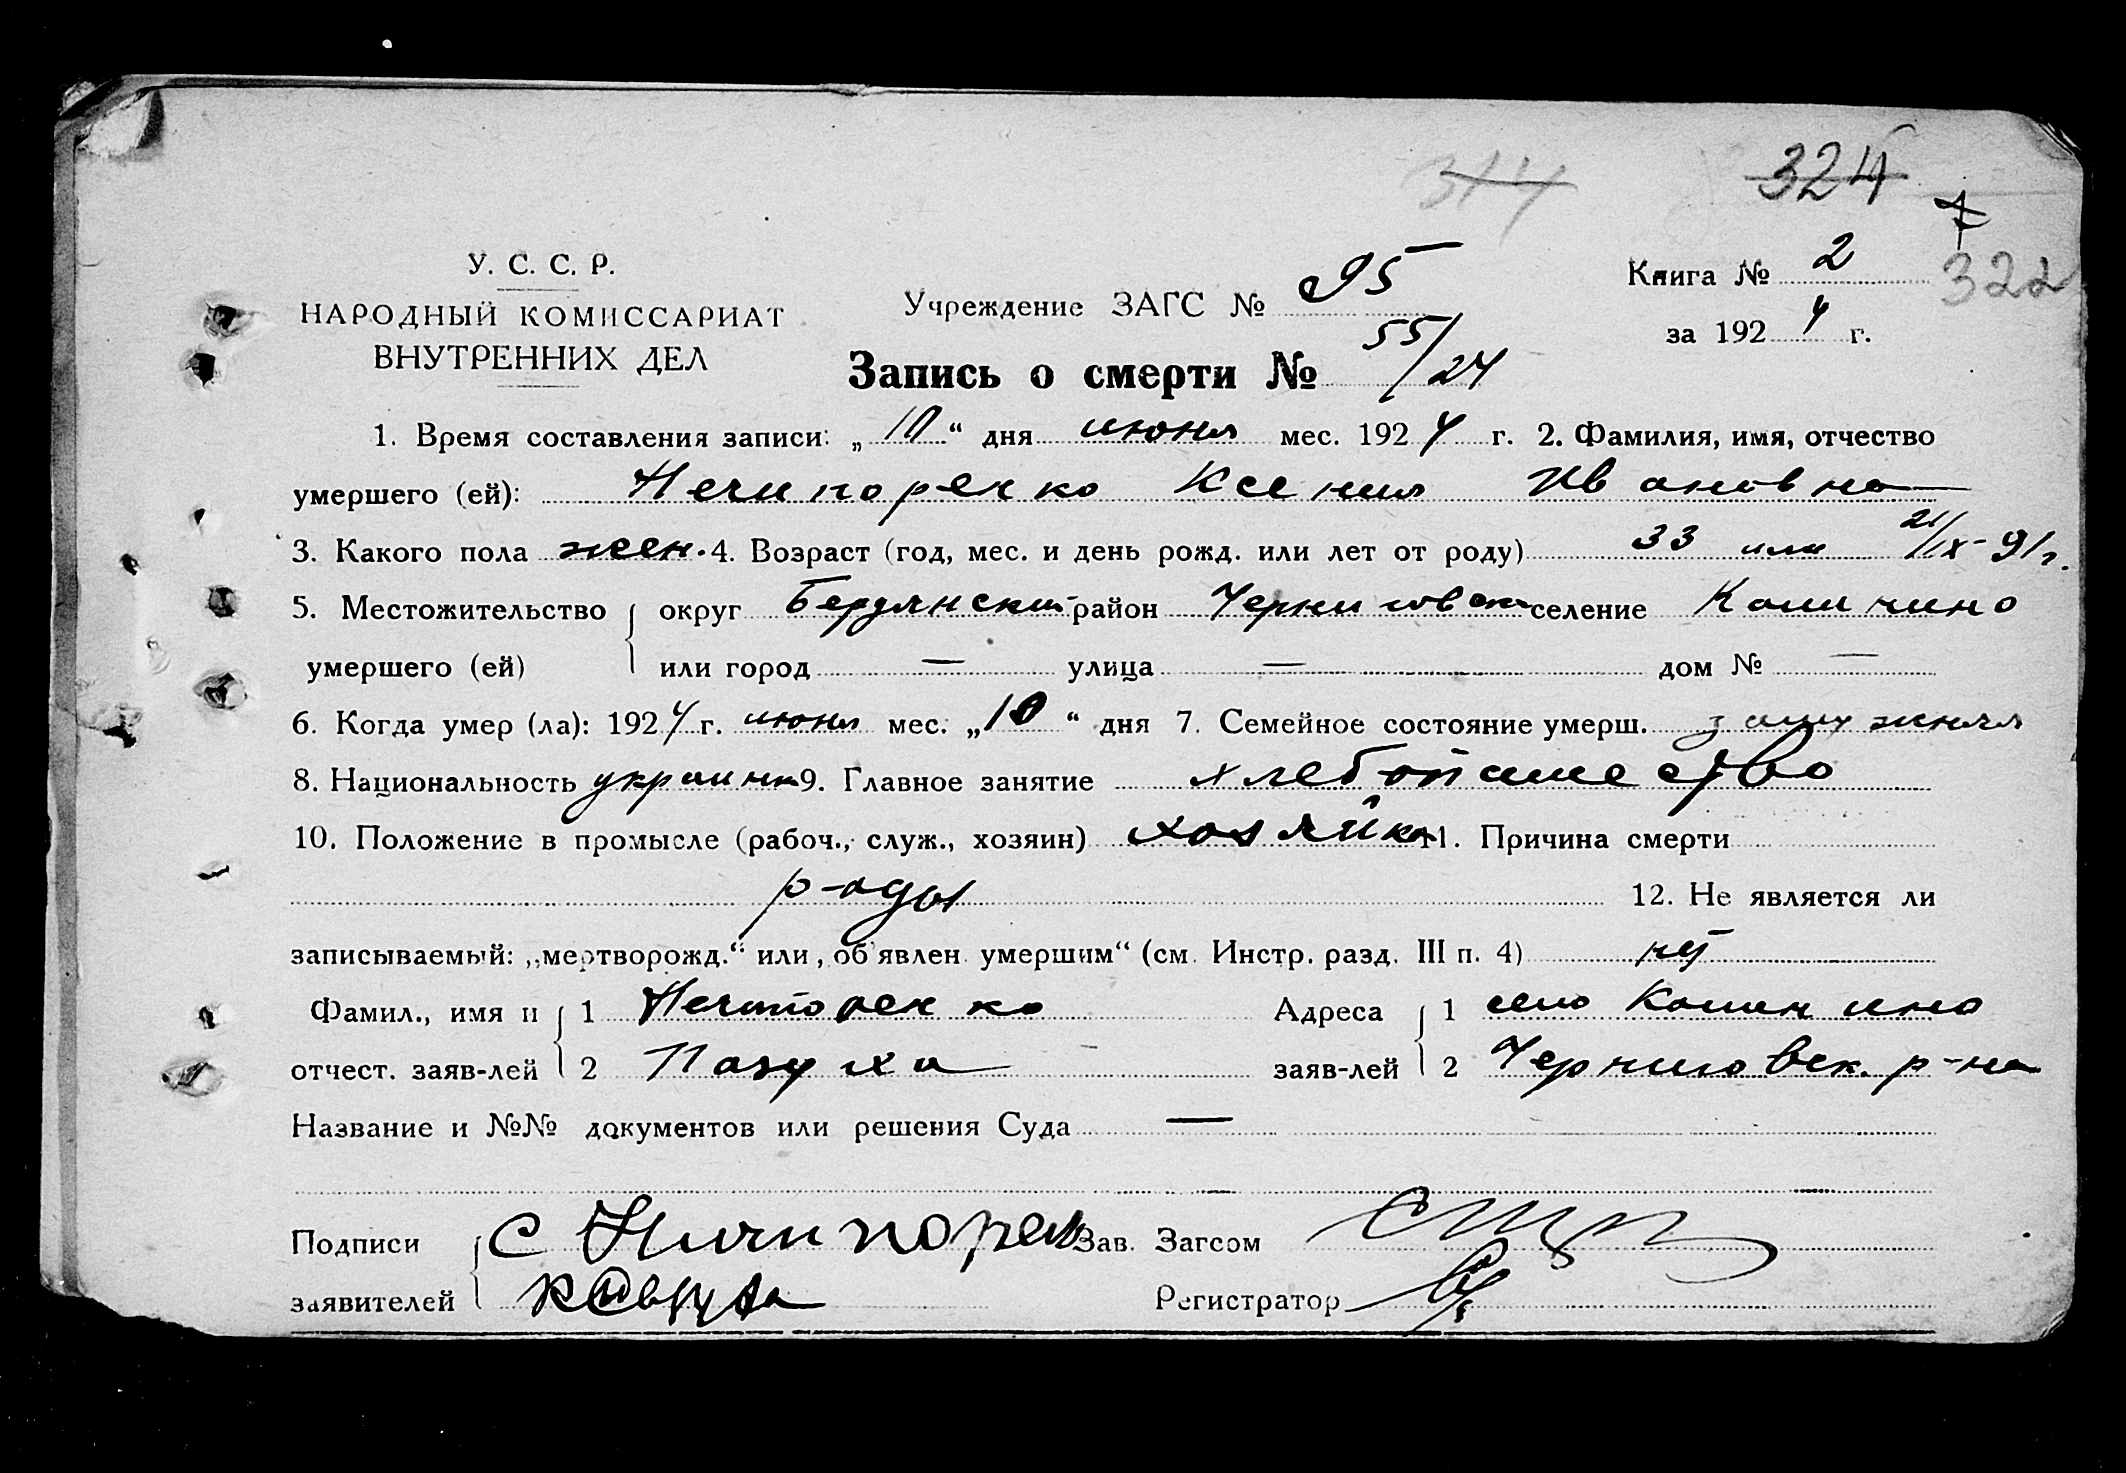 314 324
322
У. С. С. Р.
НАРОДНЫЙ КОМИССАРИАТ
ВНУТРЕННИХ ДЕЛ
Учреждение ЗАГС № 95
Книга № 2
за 1924 г.
Запись о смерти № 55/24
1. Время составления записи: „10“ дня июня мес. 1924 г. 2. Фамилия, имя, отчество
умершего (ей): Нечипоренко Ксения Ивановна
3. Какого пола жен. 4. Возраст (год, мес. и день рожд. или лет от роду) 33 или 21/IX-91г.
5. Местожительство округ Бердянский район Черниговск селение
умершего (ей) или город — улица — дом № —
6. Когда умер (ла): 1924 г. июня мес. „10“ дня 7. Семейное состояние умерш. замужняя
8. Национальность украинка 9. Главное занятие хлебопашество
10. Положение в промысле (рабоч., служ., хозяин) хозяйка 11. Причина смерти
роды 12. Не является ли
записываемый: „мертворожд.“ или „об'явлен умершим“ (см. Инстр. разд. III п. 4) нет
Фамил., имя и 1 Нечипоренко Адреса 1 село
отчест. заяв-лей 2 Пазуха заяв-лей 2 Черниговск. р-на
Название и №№ документов или решения Суда —
Подписи С Ничипорен Зав. Загсом
заявителей Регистратор